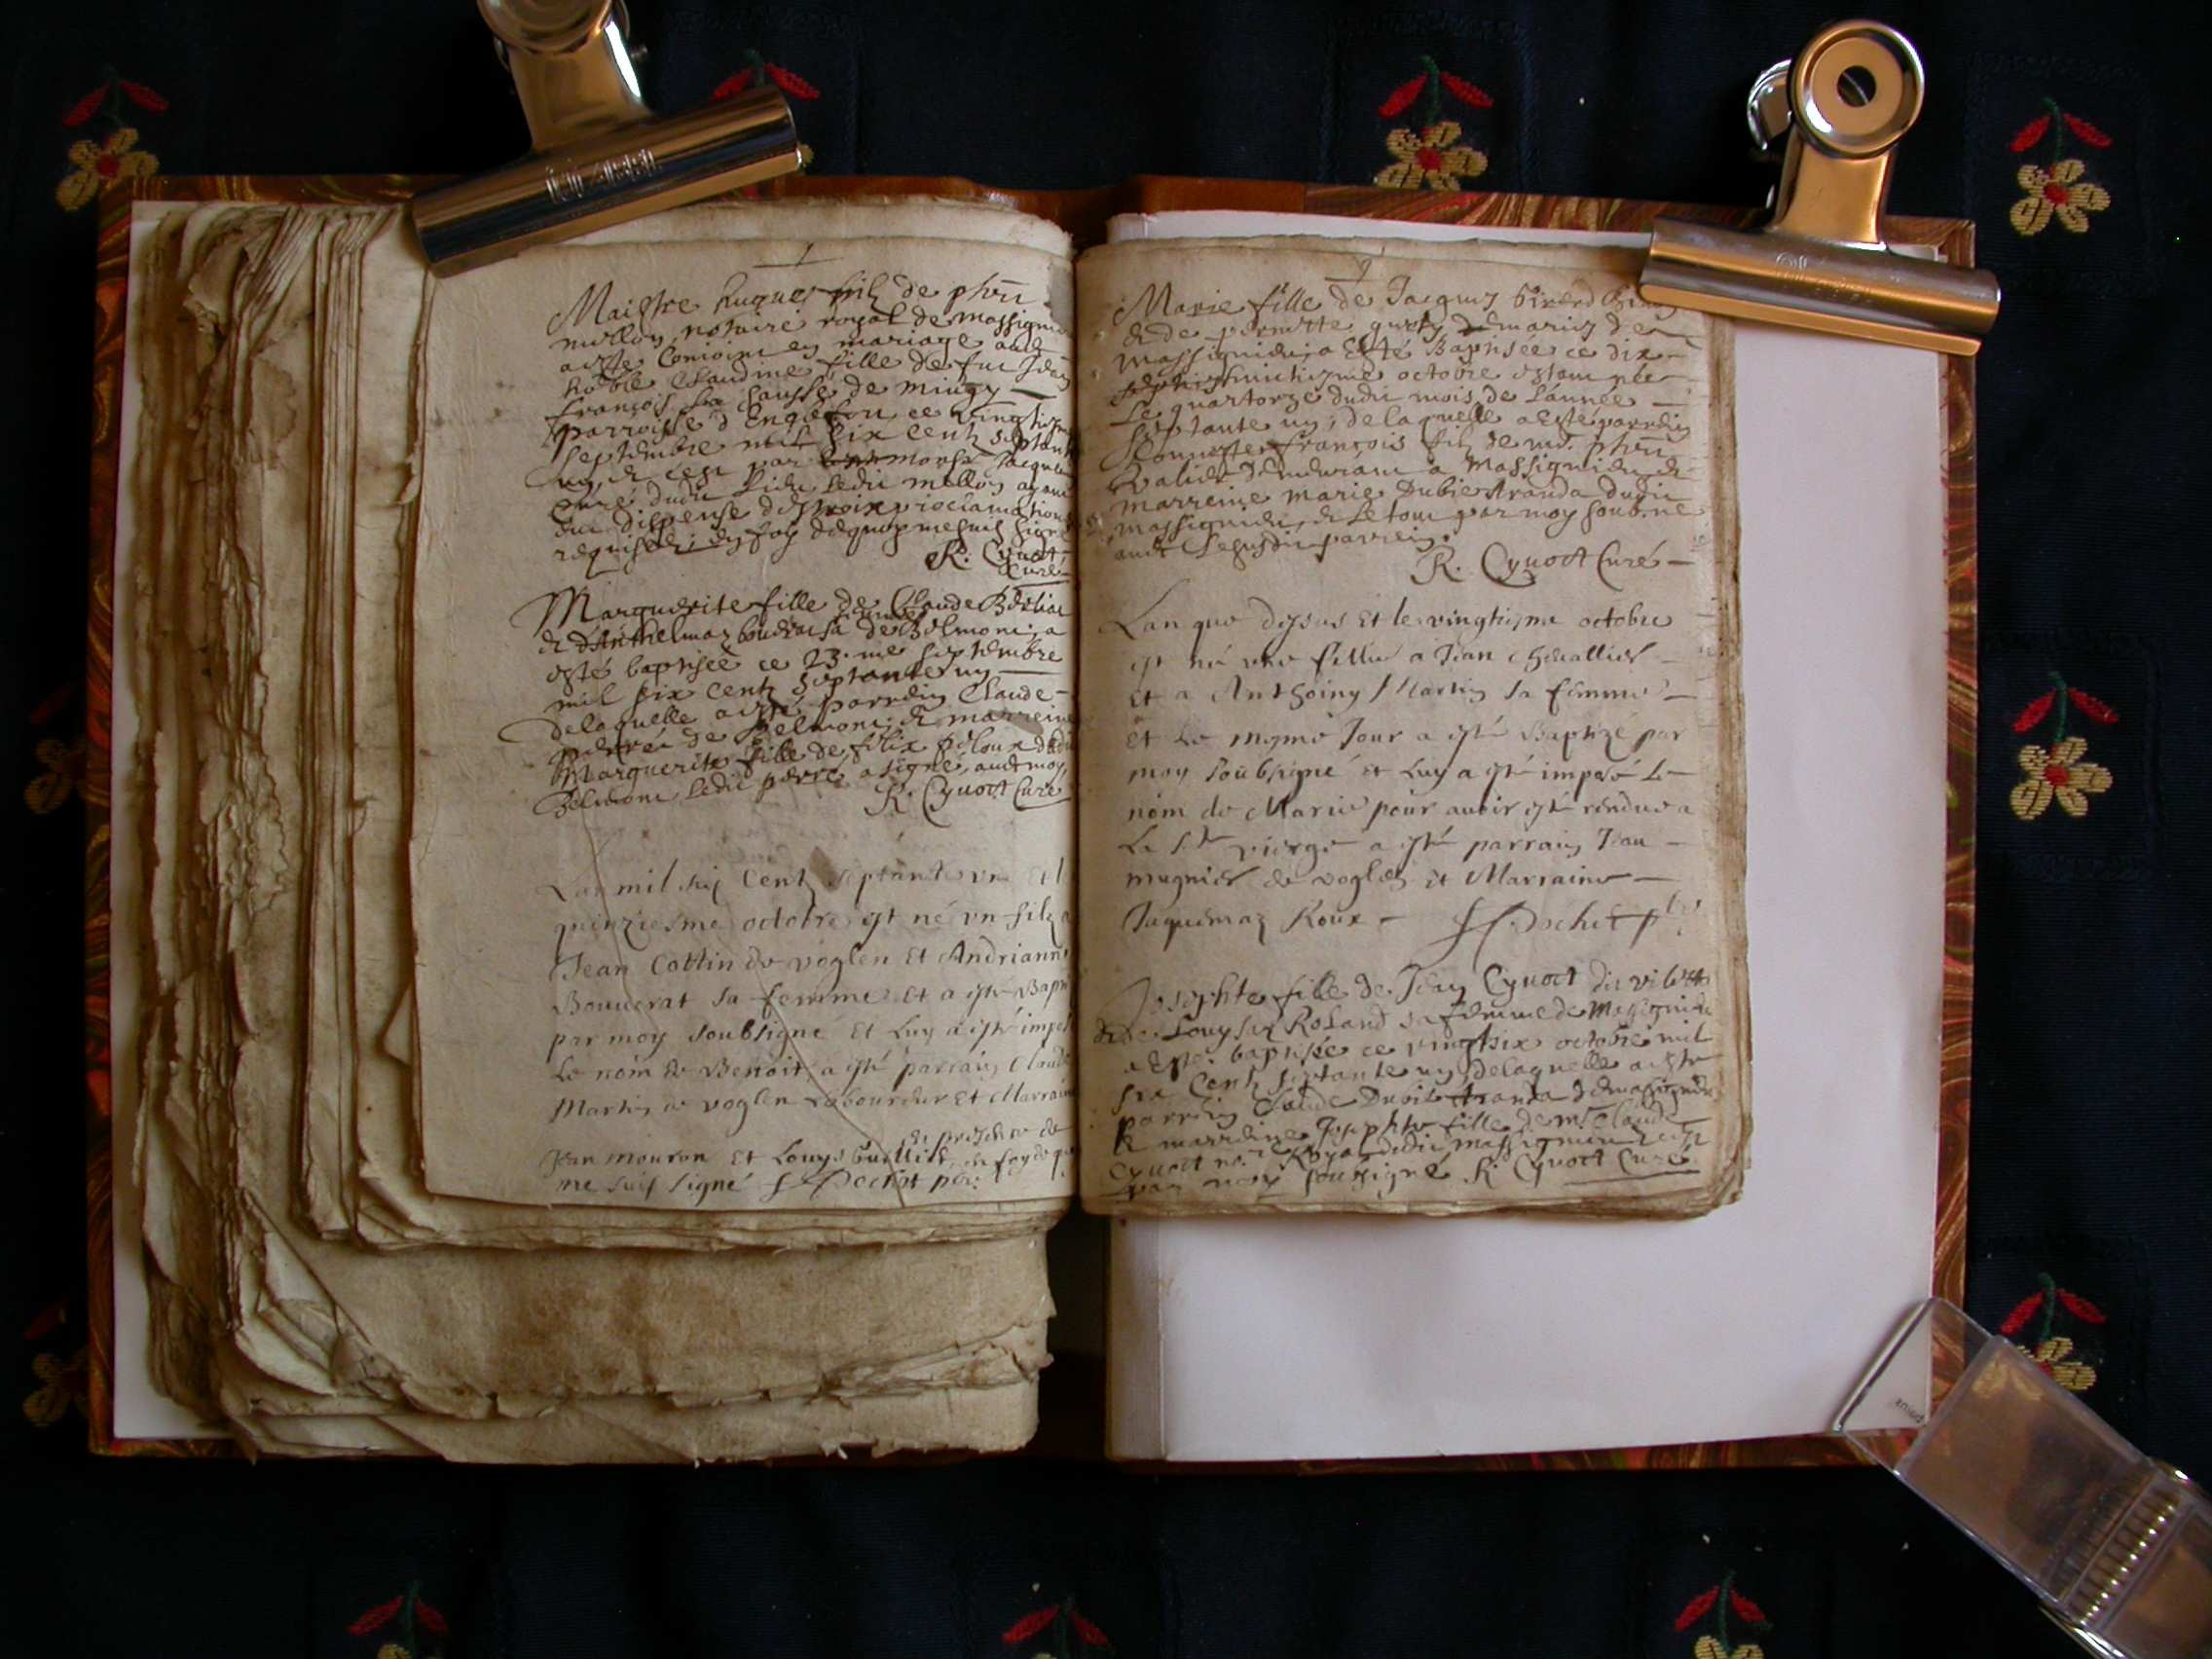 Maistre hugues filz de
notaire royal de massignieu
a esté Conioint en mariage auec
noble Claudine fille de feu Jean
françois de mingy
parroisse d'Englefou ce vingtiesme
septembre mil six centz septante
un, & c'est par Jacques
Curé dudit ledit millioz ayant
eu dispense des trois proclamations
requises; en foy de quoy me suis signé
R. Cynoct
Curé
Marguerite fille de Claude
& d'Anthelmaz sa femme de Belmont, a
esté baptisée ce 23.me septembre
mil six centz septante un
de laquelle a esté parrein Claude
de Belmont; & marreine
Marguerite fille de félix peloux dudit
Belmont ledit a signé auec moy
R. Cynoct Curé
L'an mil six Centz septante vn Et le
quinziesme octobre est né vn filz a
Jean Cottin de voglen Et Andrianne
Bouuerat sa femme Et a esté Bapti
par moy soubsigné Et Luy a esté imposé
Le nom de Benoit, a esté parrain Claude
Martin de voglen Laboureur Et Marraine
en presence de
Jean mouron Et Louys en foy de quoy
me suis signé
Marie fille de Jacques
& de pernette de
massignieu; a Esté Baptisée ce dix
huictiesme octobre estant née
Le quartorze dudit mois de L'année
septante un; de laquelle a Esté parrein
honneste françois filz de
demeurant a Massignieu &
marreine marie Dubie Aranda dudit
massignieu, & Le tout par moy soub.né
auec Le susdit parrein.
R. Cynoct Curé
Lan que dessus Et le vingtiesme octobre
est né vne fillie a Jean Cheuallier
Et a Anthoiny Martin sa femme
Et Le mesme Jour a esté Baptizé par
moy soubsigné Et Luy a esté imposé Le
nom de Marie pour auoir esté rendue a
La Ste vierge a esté parrain Jean
mugnier de voglen Et Marraine
Jaquemaz Roux
Josephte fille de Jean Cynoct dit
& de Louyse Roland sa femme de Massignieu
a Esté baptisée ce vingtsix octobre mil
six Centz septante un, de laquelle a esté
parrein Claude Dubie Aranda de massignieu
& marreine Josephte fille de mre Claude
Cynoct no.re Royal dudit massignieu
par moy soussigné R. Cynoct Curé